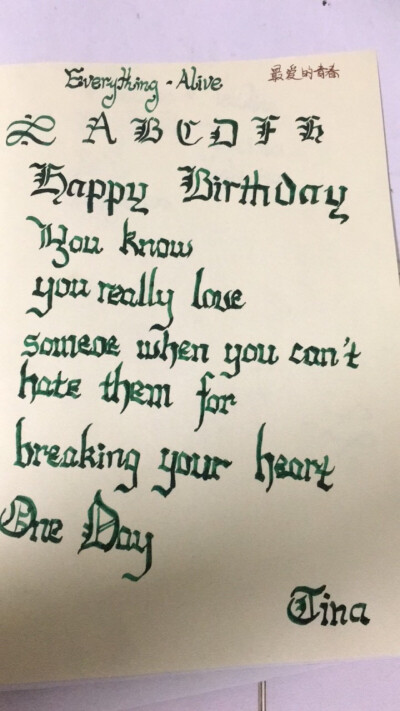 Everything - Alive
最爱的青春
A B C D F H
Happy Birthday
You know
you really love
someoe when you can't
hate them for
breaking your heart
One Day
Tina